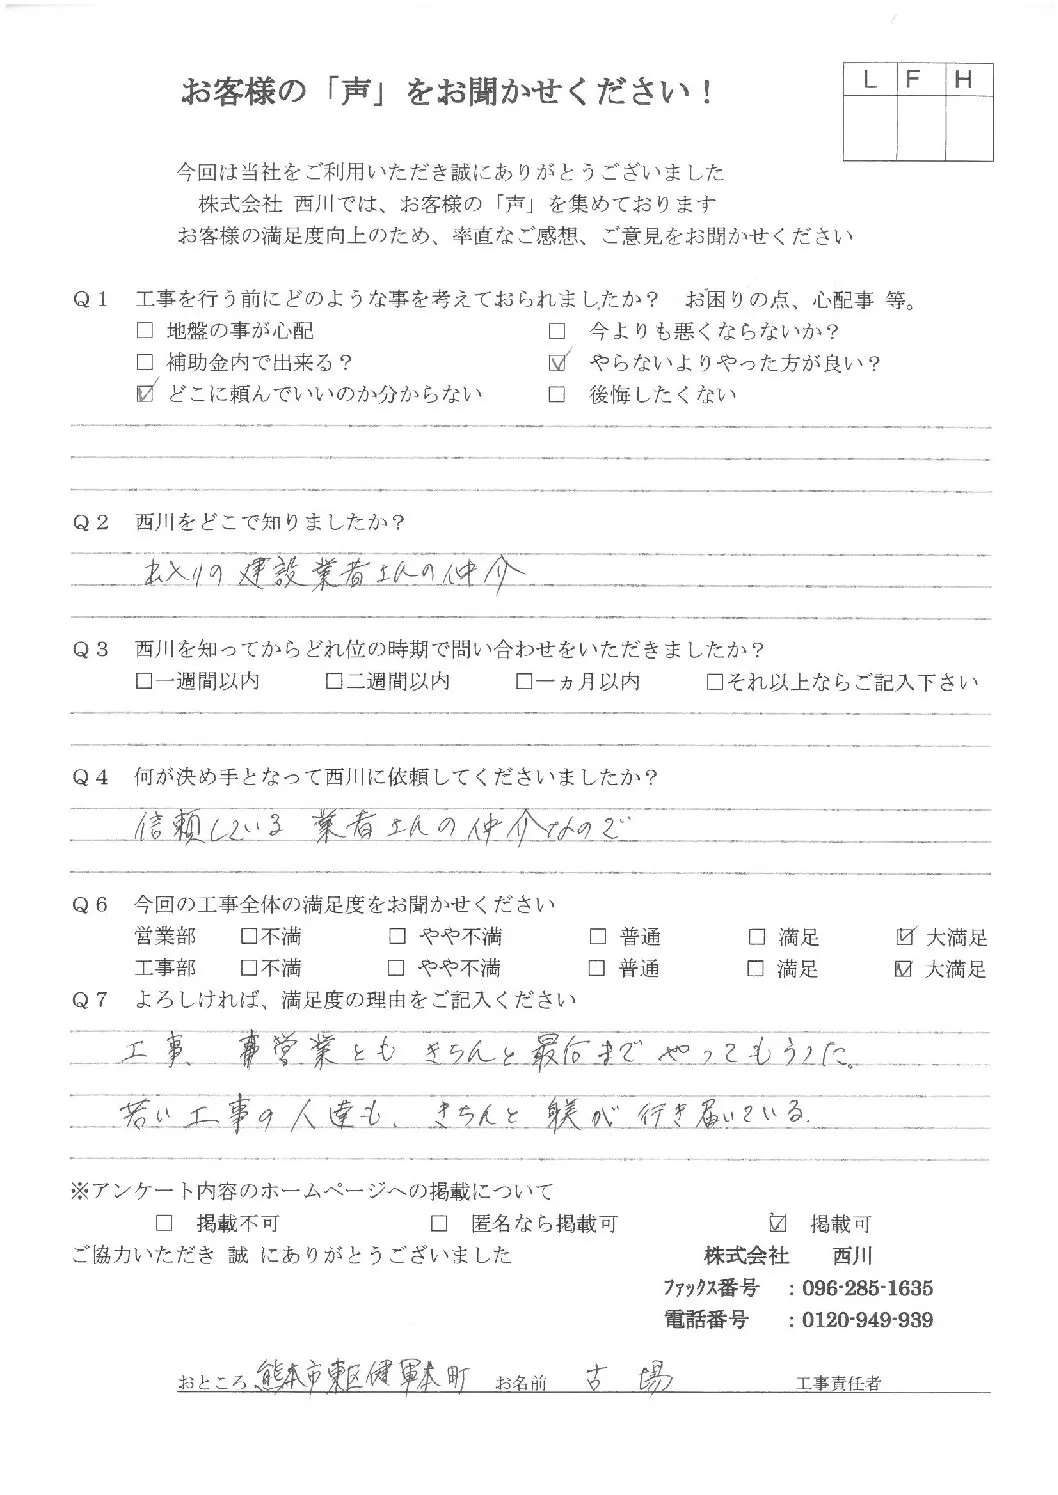 お客様の「声」をお聞かせください！
L F H
今回は当社をご利用いただき誠にありがとうございました
株式会社 西川では、お客様の「声」を集めております
お客様の満足度向上のため、率直なご感想、ご意見をお聞かせください
Q1 工事を行う前にどのような事を考えておられましたか？ お困りの点、心配事 等。
□ 地盤の事が心配 □ 今よりも悪くならないか？
□ 補助金内で出来る？ ☑ やらないよりやった方が良い？
☑ どこに頼んでいいのか分からない □ 後悔したくない
Q2 西川をどこで知りましたか？
の建設業者さんの仲介
Q3 西川を知ってからどれ位の時期で問い合わせをいただきましたか？
□一週間以内 □二週間以内 □一ヵ月以内 □それ以上ならご記入下さい
Q4 何が決め手となって西川に依頼してくださいましたか？
信頼している 業者さんの仲介なので
Q6 今回の工事全体の満足度をお聞かせください
営業部 □不満 □ やや不満 □ 普通 □ 満足 ☑ 大満足
工事部 □不満 □ やや不満 □ 普通 □ 満足 ☑ 大満足
Q7 よろしければ、満足度の理由をご記入ください
工事、 営業とも きちんと最后まで やってもらった。
若い工事の人達も、きちんと 躾が 行き届いている。
※アンケート内容のホームページへの掲載について
□ 掲載不可 □ 匿名なら掲載可 ☑ 掲載可
ご協力いただき 誠 にありがとうございました 株式会社 西川
ファックス番号 ：096-285-1635
電話番号 ：0120-949-939
おところ 熊本市東区健軍本町 お名前 古場 工事責任者